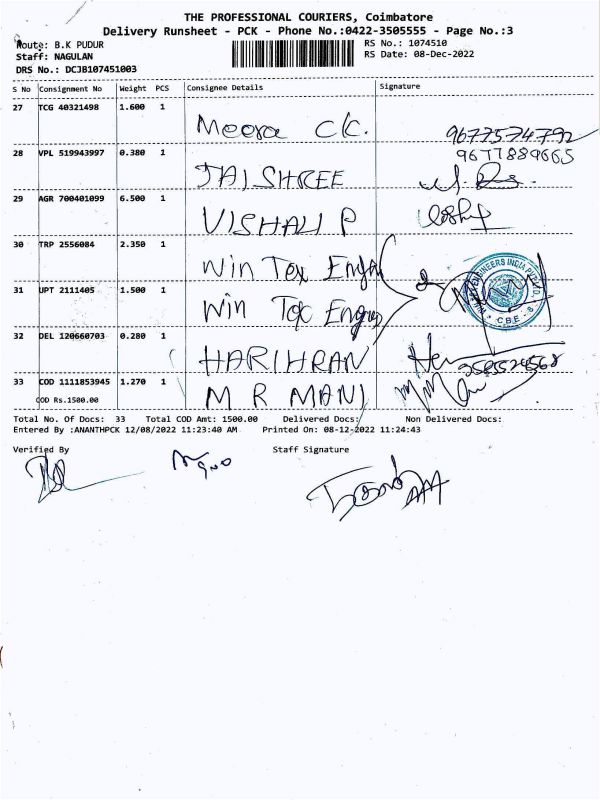 THE PROFESSIONAL COURIERS, Coimbatore
Delivery Runsheet - PCK - Phone No.:0422-3505555 - Page No.:3
Route: B.K PUDUR
RS No.: 1074510
Staff: NAGULAN
RS Date: 08-Dec-2022
DRS No.: DCJB107451003
S No Consignment No Weight PCS Consignee Details Signature
27 TCG 40321498 1.600 1 Meera C.K. 9677574792
28 VPL 519943997 0.380 1 JAI SHREE 9677889665
29 AGR 700401099 6.500 1 VISHALI P
30 TRP 2556084 2.350 1 Win Tex
31 UPT 2111405 1.500 1 Win Tex
ENGINEERS INDIA
C.B.E
32 DEL 120660703 0.280 1 HARIHRAN
33 COD 1111853945 1.270 1 M R MANI
COD Rs.1500.00
Total No. Of Docs: 33 Total COD Amt: 1500.00 Delivered Docs: Non Delivered Docs:
Entered By :ANANTHPCK 12/08/2022 11:23:40 AM Printed On: 08-12-2022 11:24:43
Verified By Staff Signature